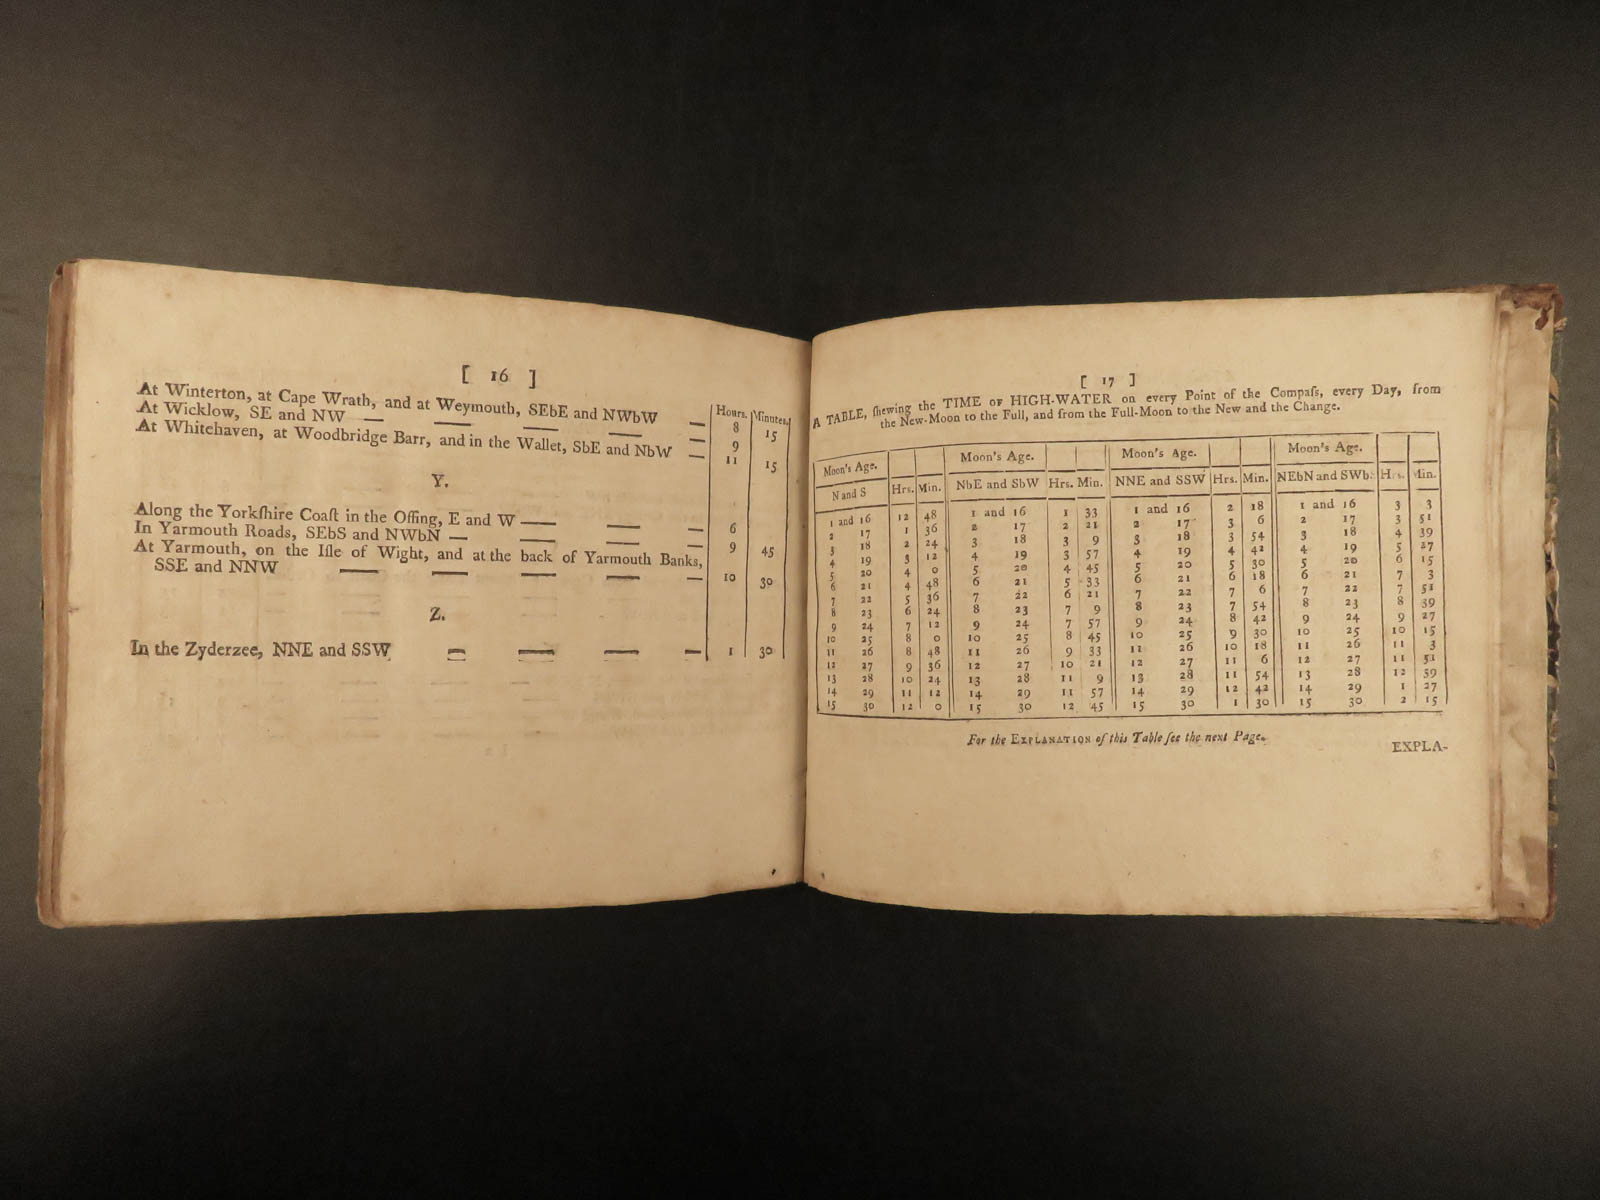 [ 16 ]
Hours. Minutes.
At Winterton, at Cape Wrath, and at Weymouth, SEbE and NWbW — 8 15
At Wicklow, SE and NW — — — — — 9
At Whitehaven, at Woodbridge Barr, and in the Wallet, SbE and NbW — 11 15
Y.
Along the Yorkſhire Coaſt in the Offing, E and W — — — 6
In Yarmouth Roads, SEbS and NWbN — — — — 9 45
At Yarmouth, on the Iſle of Wight, and at the back of Yarmouth Banks,
SSE and NNW — — — — — 10 30
Z.
In the Zyderzee, NNE and SSW — — — — 1 30
[ 17 ]
A TABLE, ſhewing the TIME OF HIGH-WATER on every Point of the Compaſs, every Day, from
the New-Moon to the Full, and from the Full-Moon to the New and the Change.
Moon's Age. Moon's Age. Moon's Age. Moon's Age.
N and S Hrs. Min. NbE and SbW Hrs. Min. NNE and SSW Hrs. Min. NEbN and SWbS Hrs. Min.
1 and 16 12 48 1 and 16 1 33 1 and 16 2 18 1 and 16 3 3
2 17 1 36 2 17 2 21 2 17 3 6 2 17 3 51
3 18 2 24 3 18 3 9 3 18 3 54 3 18 4 39
4 19 3 12 4 19 3 57 4 19 4 42 4 19 5 27
5 20 4 0 5 20 4 45 5 20 5 30 5 20 6 15
6 21 4 48 6 21 5 33 6 21 6 18 6 21 7 3
7 22 5 36 7 22 6 21 7 22 7 6 7 22 7 51
8 23 6 24 8 23 7 9 8 23 7 54 8 23 8 39
9 24 7 12 9 24 7 57 9 24 8 42 9 24 9 27
10 25 8 0 10 25 8 45 10 25 9 30 10 25 10 15
11 26 8 48 11 26 9 33 11 26 10 18 11 26 11 3
12 27 9 36 12 27 10 21 12 27 11 6 12 27 11 51
13 28 10 24 13 28 11 9 13 28 11 54 13 28 12 39
14 29 11 12 14 29 11 57 14 29 12 42 14 29 1 27
15 30 12 0 15 30 12 45 15 30 1 30 15 30 2 15
For the EXPLANATION of this Table ſee the next Page.
EXPLA-